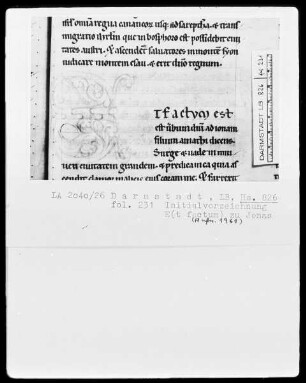 est omnia regna cananeorum usq; ad sarepcha & trans
migratio ihrlm que in bosphoro est possidebit ciui
tates austri. Et ascendent saluatores in montem syon
iudicare montem esau & erit dno regnum.
Et factum est
est uerbum dni ad ionam
filium amathi dicens
Surge & uade in nini
uen ciuitatem grandem & predica in ea quia as
DARMSTADT LB 826 fol 231
LA 2040/26 Darmstadt, LB. Hs. 826
fol. 231 Initialvorzeichnung
E(t factum) zu Jonas
(Aufn. 1961)